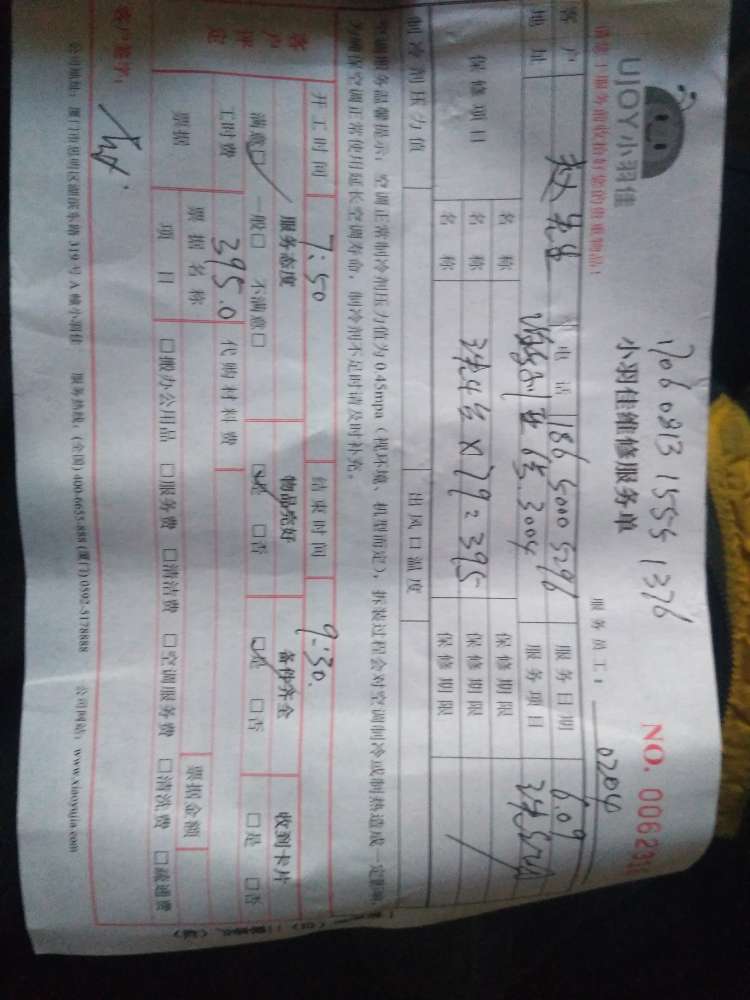 1706 0813 1555 1376
UJOY小羽佳
小羽佳维修服务单
NO. 006231
服务员工： 0204
客户 赵先生 电话 186 5000 5296 服务日期 6.09
地址 3004 服务项目
保修项目 名称 保修期限
名称 洗5台×79=395 保修期限
名称 保修期限
制冷剂压力值 出风口温度
空调服务温馨提示：空调正常制冷剂压力值为0.45mpa（视环境、机型而定），拆装过程会对空调制冷或制热造成一定影响，
为确保空调正常使用延长空调寿命，制冷剂不足时请及时补充。
开工时间 7:50 结束时间 9:30.
客户评定 服务态度 物品完好 备件齐全 收到卡片
满意□ 一般□ 不满意□ □是 □否 □是 □否 □是 □否
工时费 395.0 代购材料费
票据 票据名称 票据金额
项目 □搬办公用品 □服务费 □清洁费 □空调服务费 □清洗费 □疏通费
客户签字：
公司地址：厦门市思明区湖滨东路319号A幢小羽佳 服务热线：(全国)400-6655-888 (厦门)0592-5178888 公司网站：www.xiaoyujia.com